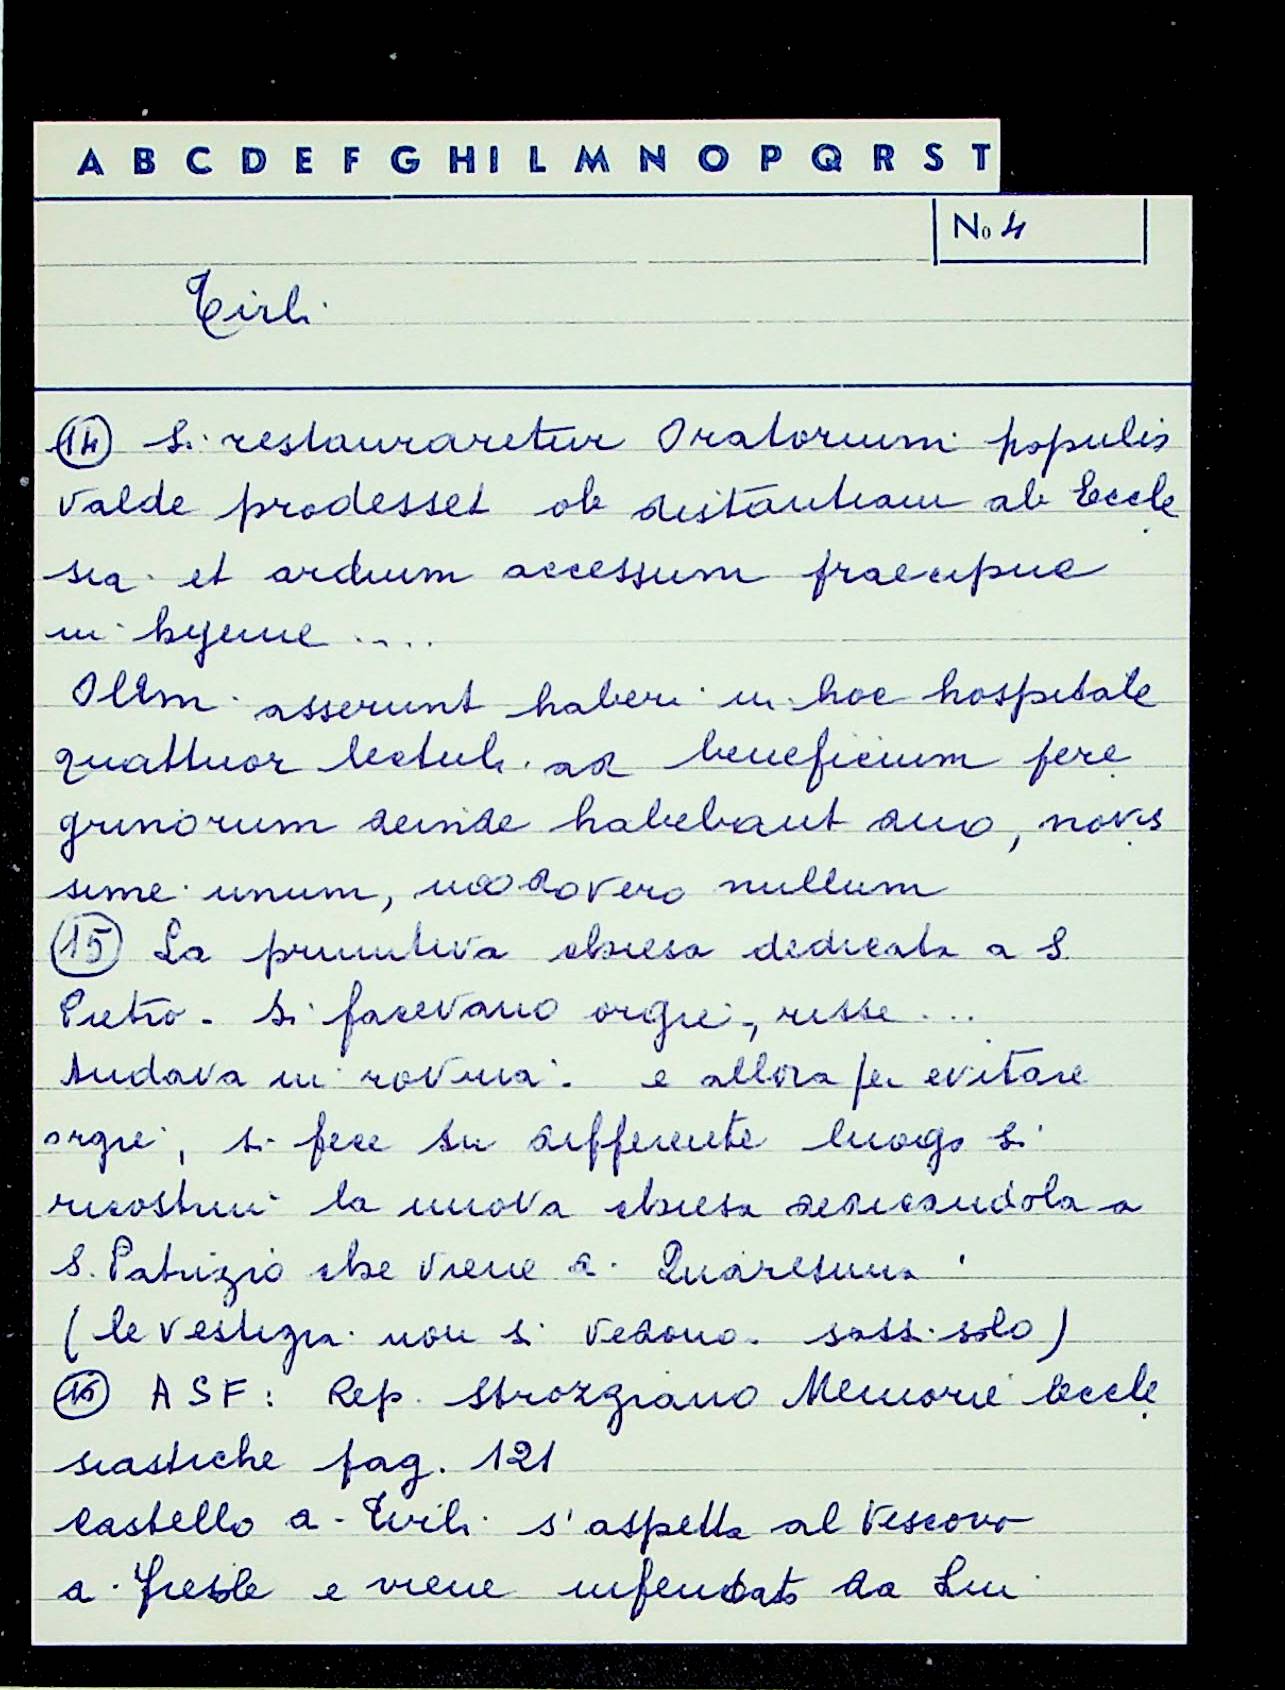 A B C D E F G H I L M N O P Q R S T
No 4
Tirli
14 Si restauraretur Oratorium populis
valde prodesset ob distantiam ab Eccle
sia et arduum accessum praecipue
in hyeme ....
Olim asserunt haberi in hoc hospitale
quattuor lectuli ad beneficium pere
grinorum deinde habebant duo, novis
sime unum, modo vero nullum
15 La primitiva chiesa dedicata a S.
Pietro - Si facevano orgie, risse ...
Andava in rovina. e allora per evitare
orgie, si fece in differente luogo si
ricostruì la nuova chiesa dedicandola a
S. Patrizio che viene di Quaresima
(le vestigia non si vedono. sassi solo)
16 ASF: Rep. Strozziano Memorie Eccle
siastiche pag. 121
Castello di Tirli s'aspetta al Vescovo
di Fiesole e viene infeudato da Lui